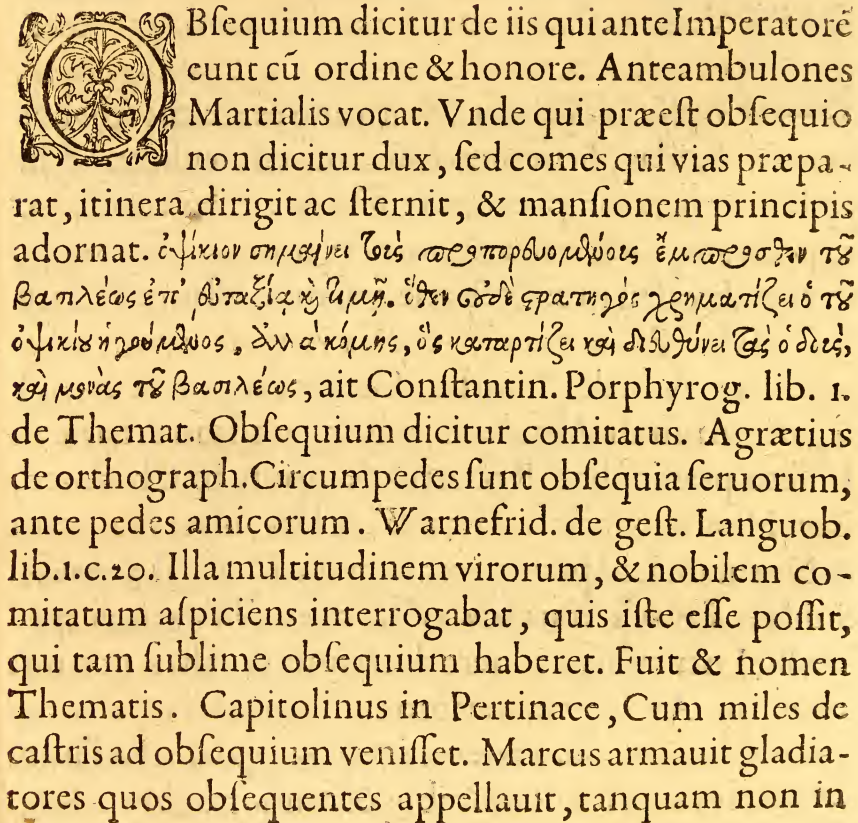 OBſequium dicitur de iis qui ante Imperatorē
eunt cū ordine & honore. Anteambulones
Martialis vocat. Vnde qui præeſt obſequio
non dicitur dux, ſed comes qui vias præpa-
rat, itinera dirigit ac ſternit, & manſionem principis
adornat. ὀψίκιον σημαίνει τοὺς προπορευομένους ἔμπροσθεν τοῦ
βασιλέως ἐπ' εὐταξίᾳ καὶ τιμῇ. ὅθεν οὐδὲ στρατηγὸς χρηματίζει ὁ τοῦ
ὀψικίου ἡγούμενος, ἀλλὰ κόμης, ὃς καταρτίζει καὶ διευθύνει τὰς ὁδοὺς,
καὶ μονὰς τοῦ βασιλέως, ait Conſtantin. Porphyrog. lib. 1.
de Themat. Obſequium dicitur comitatus. Agrætius
de orthograph. Circumpedes ſunt obſequia ſeruorum,
ante pedes amicorum. Warnefrid. de geſt. Languob.
lib.1.c.20. Illa multitudinem virorum, & nobilem co-
mitatum aſpiciens interrogabat, quis iſte eſſe poſſit,
qui tam ſublime obſequium haberet. Fuit & nomen
Thematis. Capitolinus in Pertinace, Cum miles de
caſtris ad obſequium veniſſet. Marcus armauit gladia-
tores quos obſequentes appellauit, tanquam non in